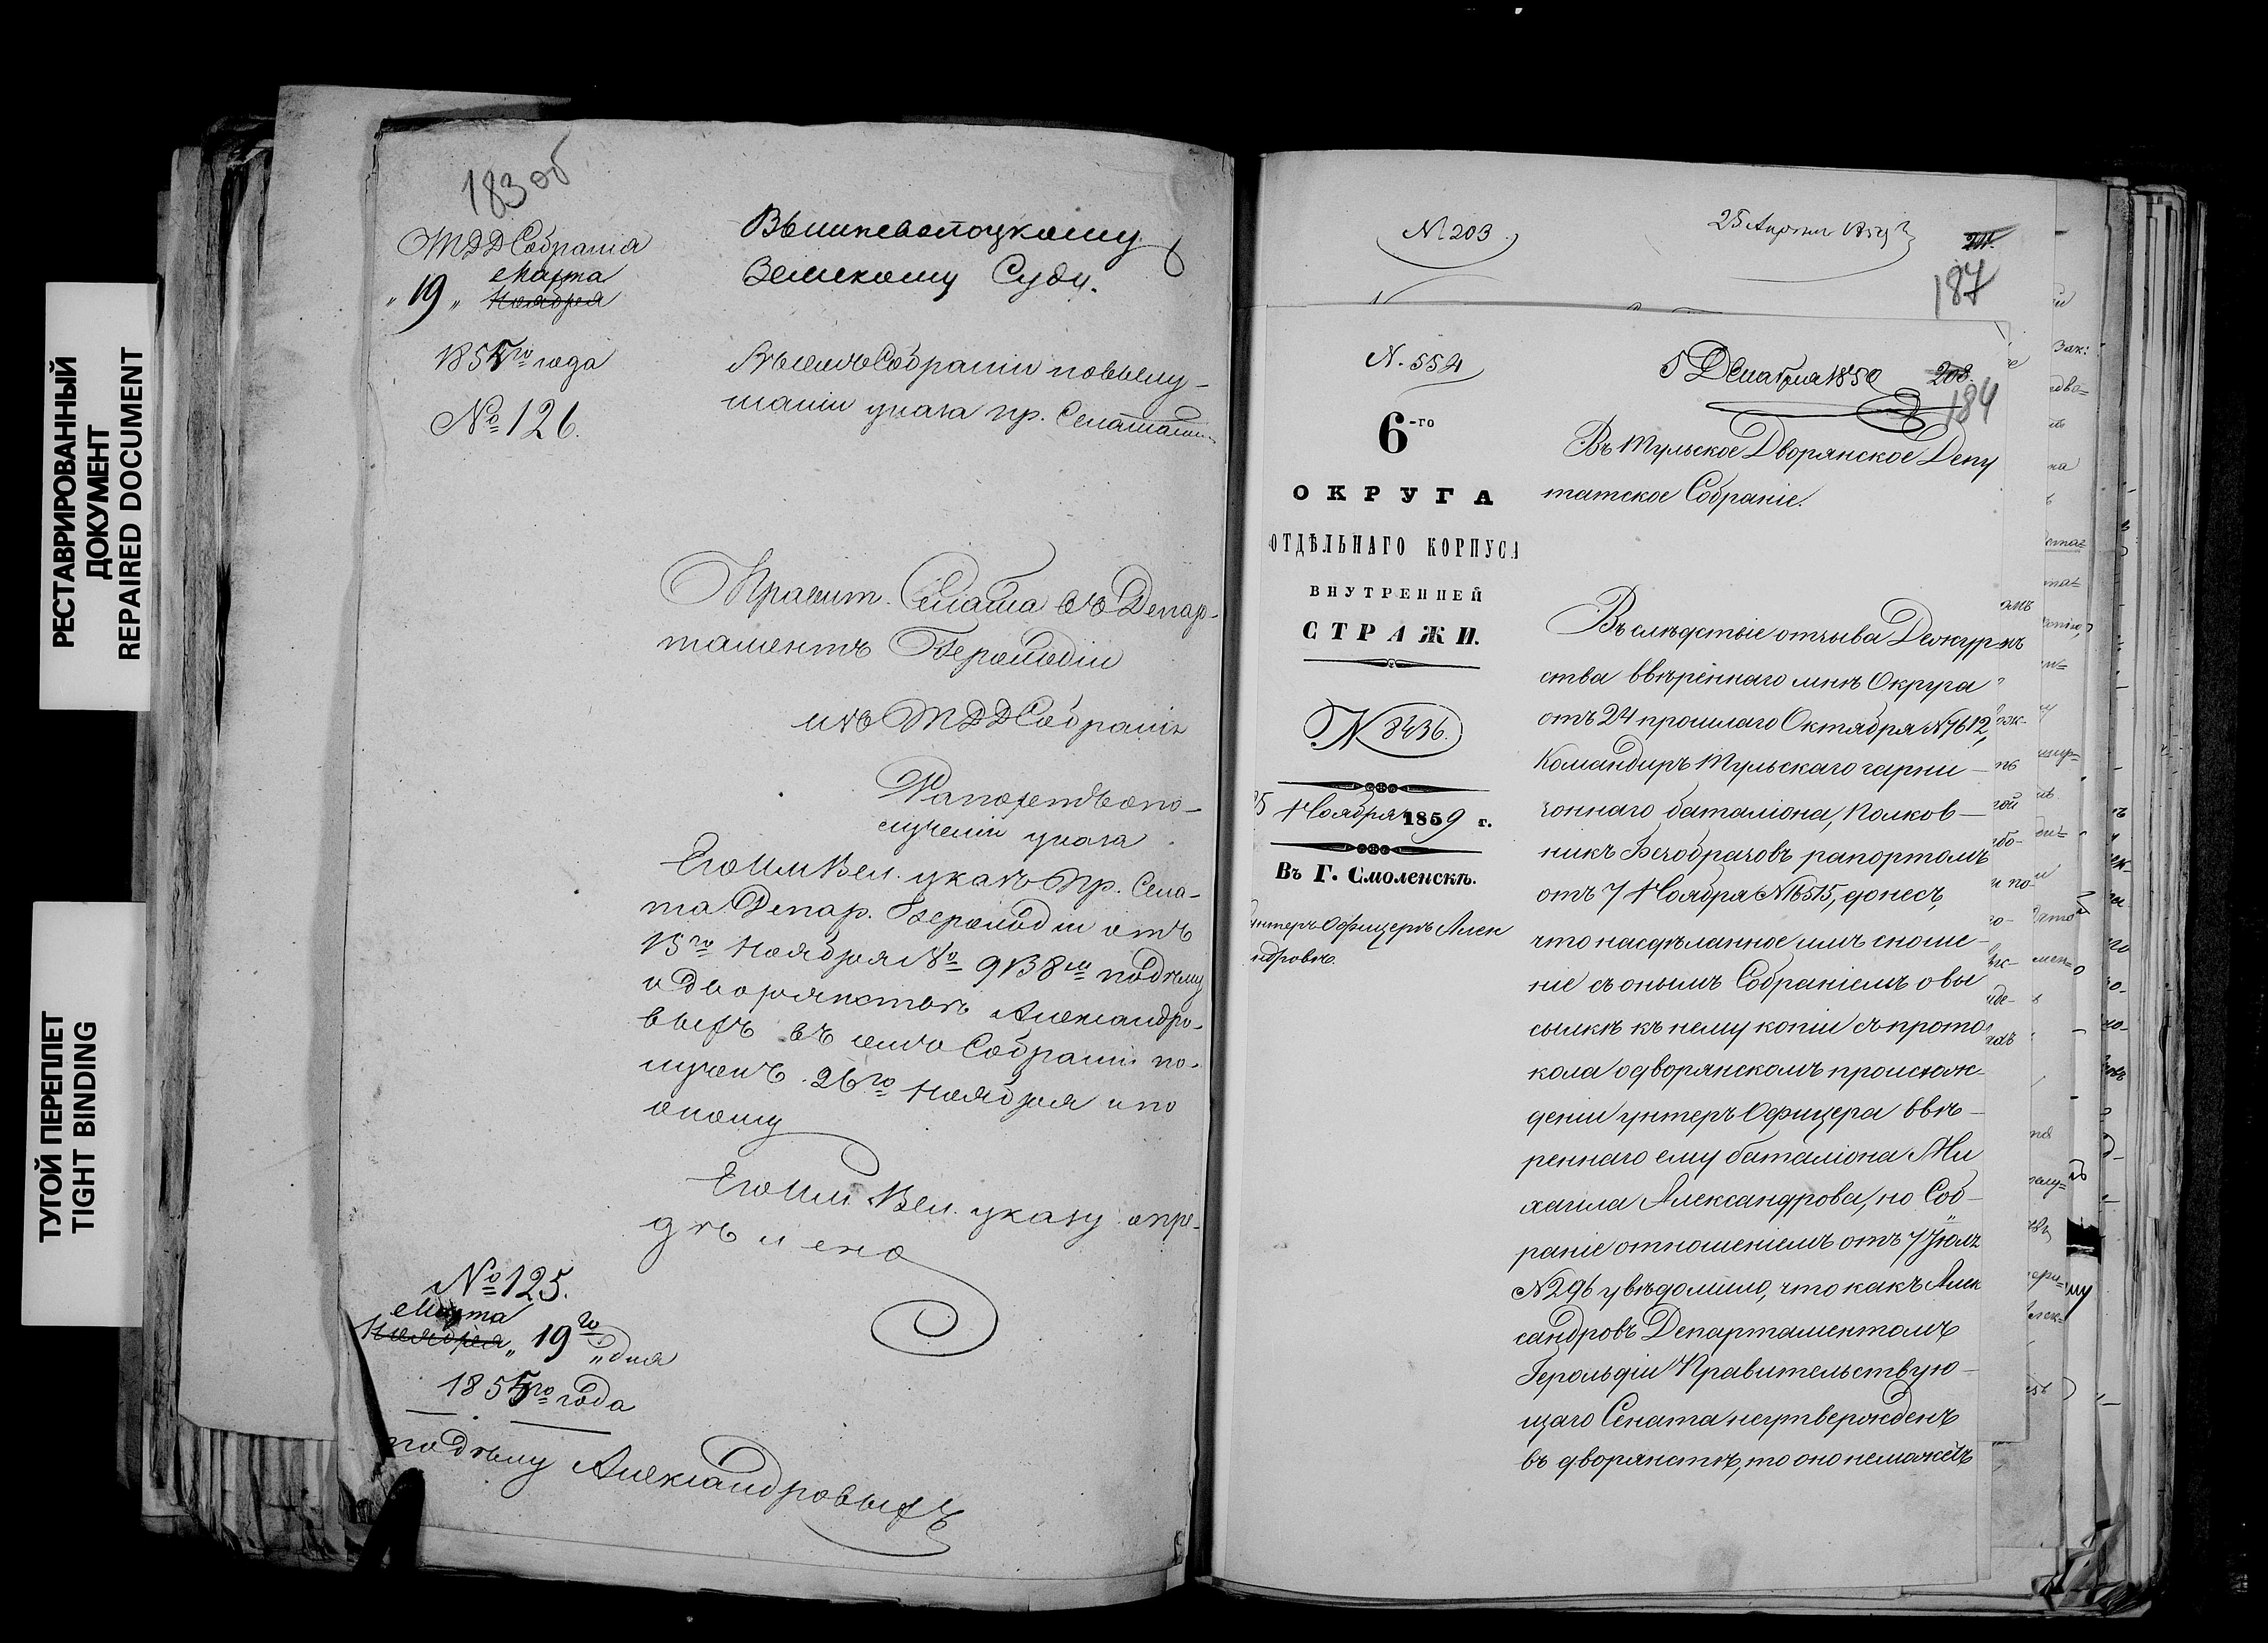 РЕСТАВРИРОВАННЫЙ
ДОКУМЕНТ
REPAIRED DOCUMENT
ТУГОЙ ПЕРЕПЛЕТ
TIGHT BINDING
183 об
ТДДСобранія
Марта
„19„ Ноября
1855го года
№ 126.
Вышневолоцкому
Земскому Суду.
Въ семъ Собраніи по выслу-
шаніи указа пр. Сената
Правит. Сената въ Депар-
таментъ Герольдіи
изъ ТДДСобранія
Рапортъ о по-
лученіи указа
Его Им Вел. указъ Пр. Сена-
та Депар. Герольдіи отъ
15го Ноября № 9138м по дѣлу
о дворянствѣ Александро-
выхъ въ семъ Собраніи по-
лученъ 26го Ноября и по
оному
Его Им. Вел. указу опре-
дѣлено
№ 125.
Марта
Ноября „19го „дня
1855го года
по дѣлу Александровыхъ
№ 203
25 Апрѣля
187
№. 554
5 Декабря 1859
208
184
6-го
ОКРУГА
ОТДѢЛЬНАГО КОРПУСА
ВНУТРЕННЕЙ
СТРАЖИ.
№ 8436.
Ноября 1859 г.
Въ Г. Смоленскѣ.
унтеръ Офицерѣ Алек
ндровѣ.
Въ Тульское Дворянское Депу
татское Собраніе.
Въ слѣдствіе отзыва Дежур
ства ввѣреннаго мнѣ Округа
отъ 24 прошлаго Октября №7612,
Командиръ Тульскаго гарни-
зоннаго баталіона, Полков-
никъ Безобразовъ рапортомъ
отъ 7 Ноября №16515, донесъ,
что на сдѣланное имъ сноше-
ніе съ онымъ Собраніемъ о вы
сылкѣ къ нему копіи съ прото
кола о дворянскомъ происхож-
деніи унтеръ Офицера ввѣ-
реннаго ему баталіона Ми
хаила Александрова, но Соб-
раніе отношеніемъ отъ 7 Іюля
№296 увѣдомило, что какъ Алек
сандровъ Департаментомъ
Герольдіи Правительствую-
щаго Сената неутвержденъ
въ дворянствѣ, то оно неможетъ